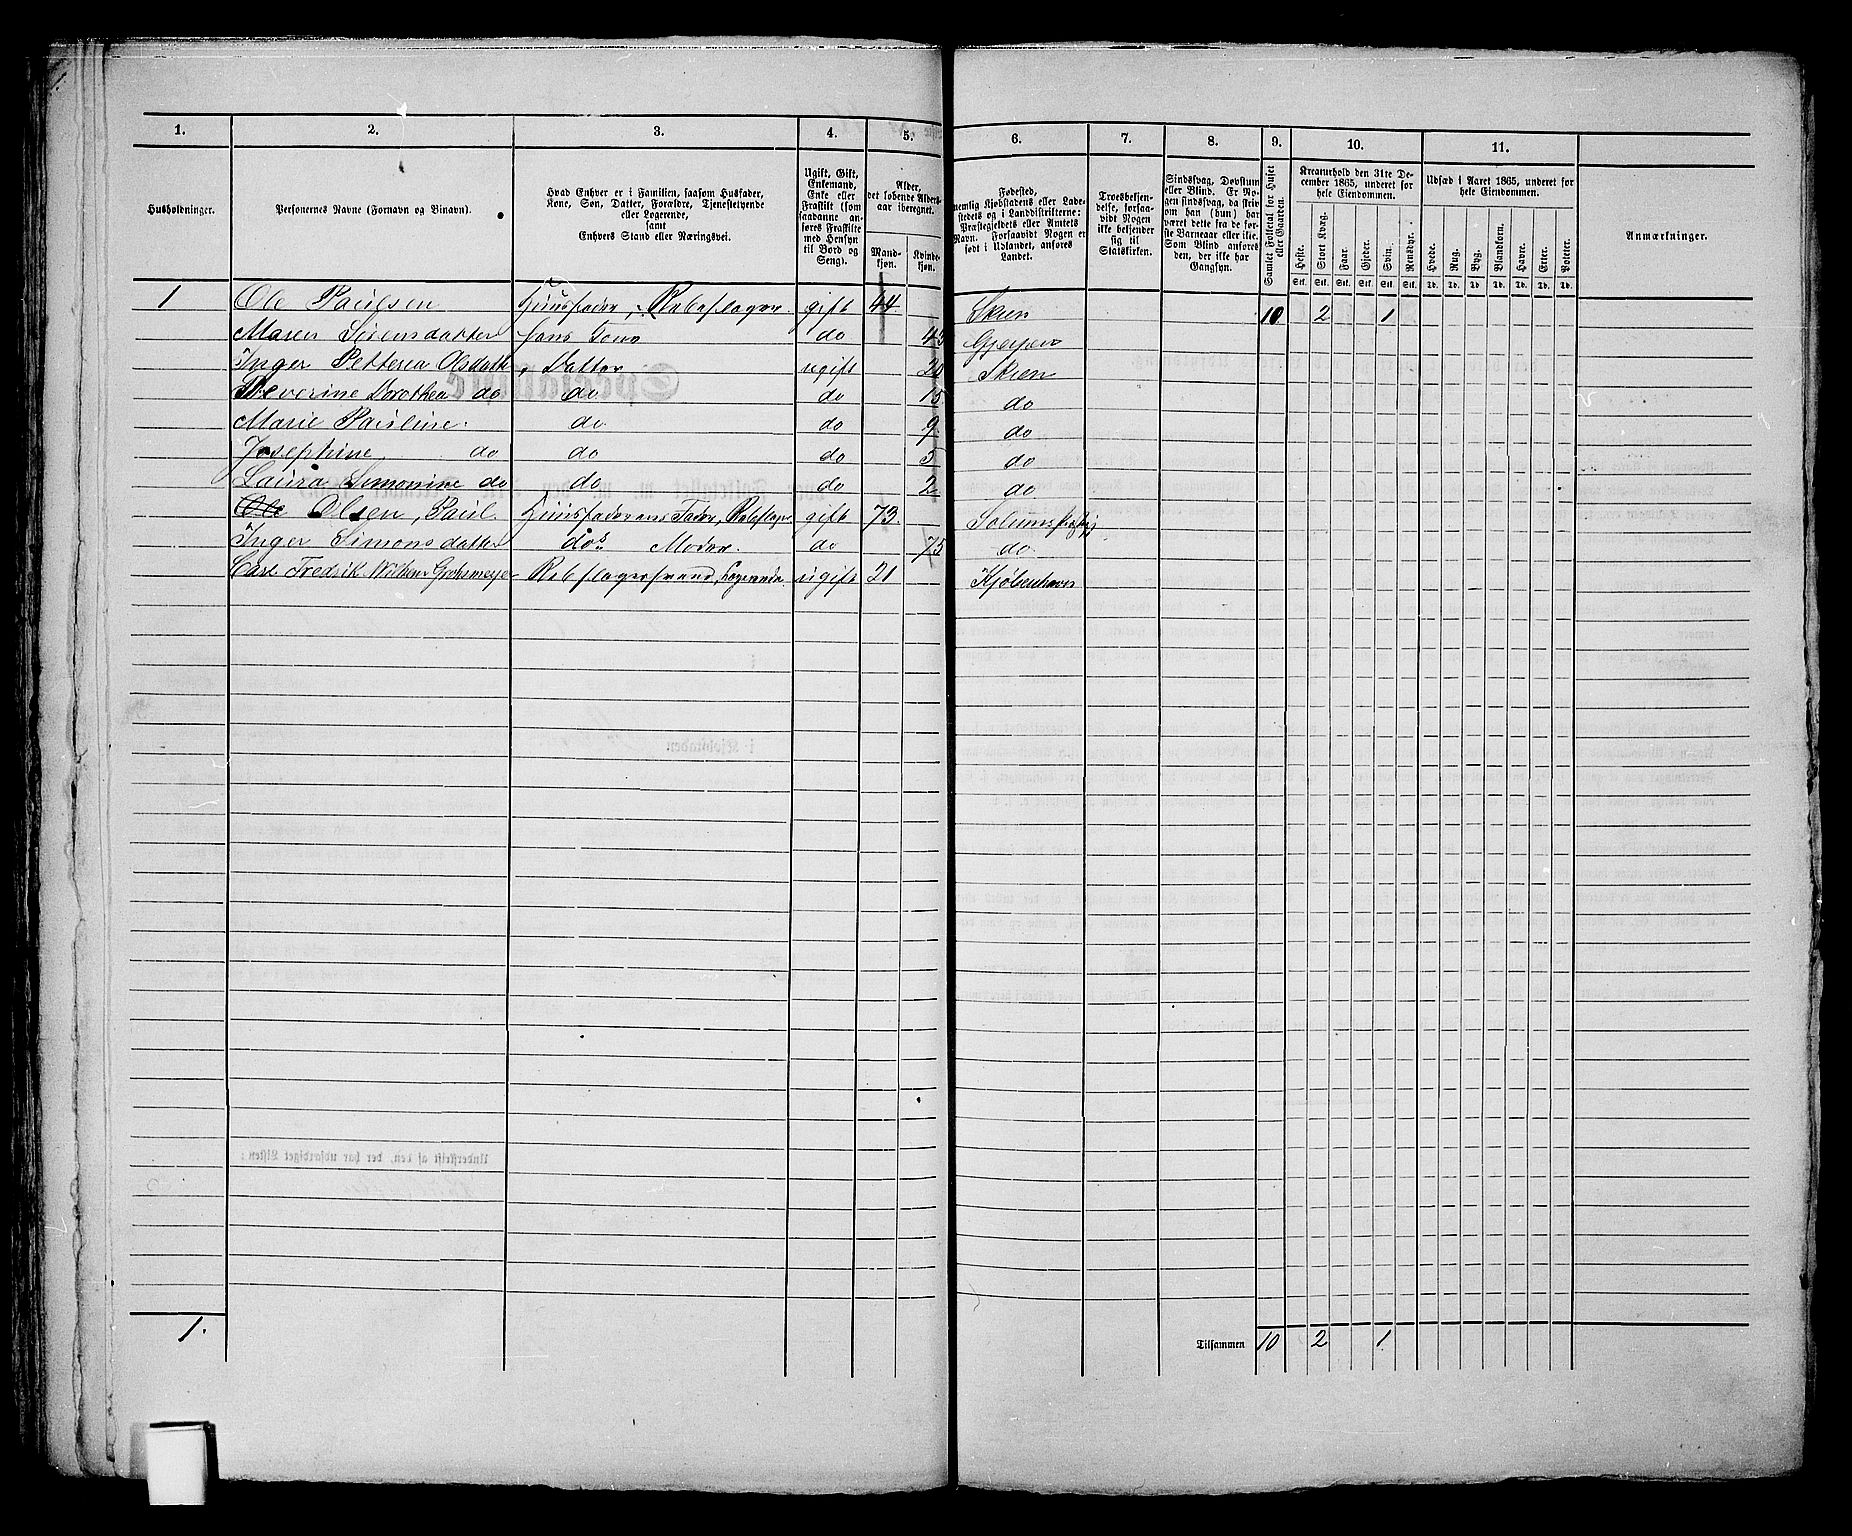 1. 2. 3. 4. 5. 6. 7. 8. 9. 10. 11.
Husholdninger.
Personernes Navne (Fornavn og Binavn).
Hvad Enhver er i Familien, saasom Husfader,
Kone, Søn, Datter, Forældre, Tjenestetyende
eller Logerende,
samt
Enhvers Stand eller Næringsvei.
Ugift, Gift,
Enkemand,
Enke eller
Fraskilt (som
saadanne an-
føres Fraskilte
med Hensyn
til Bord og
Seng).
Alder,
det løbende Alders-
aar iberegnet.
Mand-
kjøn.
Kvinde-
kjøn.
Fødested,
nemlig Kjøbstadens eller Lade-
stedets og i Landdistrikterne:
Præstegjeldets eller Amtets
Navn. Forsaavidt Nogen er
født i Udlandet, anføres
Landet.
Troesbekjen-
delse, forsaa-
vidt Nogen
ikke bekjender
sig til
Statskirken.
Sindssvag, Døvstum
eller Blind. Er No-
gen sindssvag, da skriv
om han (hun) har
været dette fra de før-
ste Barneaar eller ikke.
Som Blind anføres
den, der ikke har
Gangsyn.
Samlet Folketal for Huset
eller Gaarden.
Kreaturhold den 31te De-
cember 1865, underet for
hele Eiendommen.
Heste. Stort Kvæg. Faar. Gjeder. Svin. Rensdyr.
Stk. Stk. Stk. Stk. Stk. Stk.
Udsæd i Aaret 1865, underet for
hele Eiendommen.
Hvede. Rug. Byg. Blandkorn. Havre. Erter. Poteter.
Td. Td. Td. Td. Td. Td. Td.
Anmærkninger.
1 Ole Paulsen Huusfader, Rebslager. gift 44 Skien 10 2 1
Maren Sørensdatter hans Kone do 45 Gjerpen
Inger Petterea Olsdatt. Datter ugift 20 Skien
Severine Dorothea do do do 15 do
Marie Pauline. do do 9 do
Josephine do do do 5 do
Laura Simonine do do do 2 do
Ole Olsen, Paul. Huusfaderens Fader, Rebslager gift 73. Solums
Inger Simonsdatter dos Moder. do 75 do
Carl Fredrik Rebslagersvend, Logerende ugift 21 Kjøbenhavn
1.
Tilsammen 10 2 1